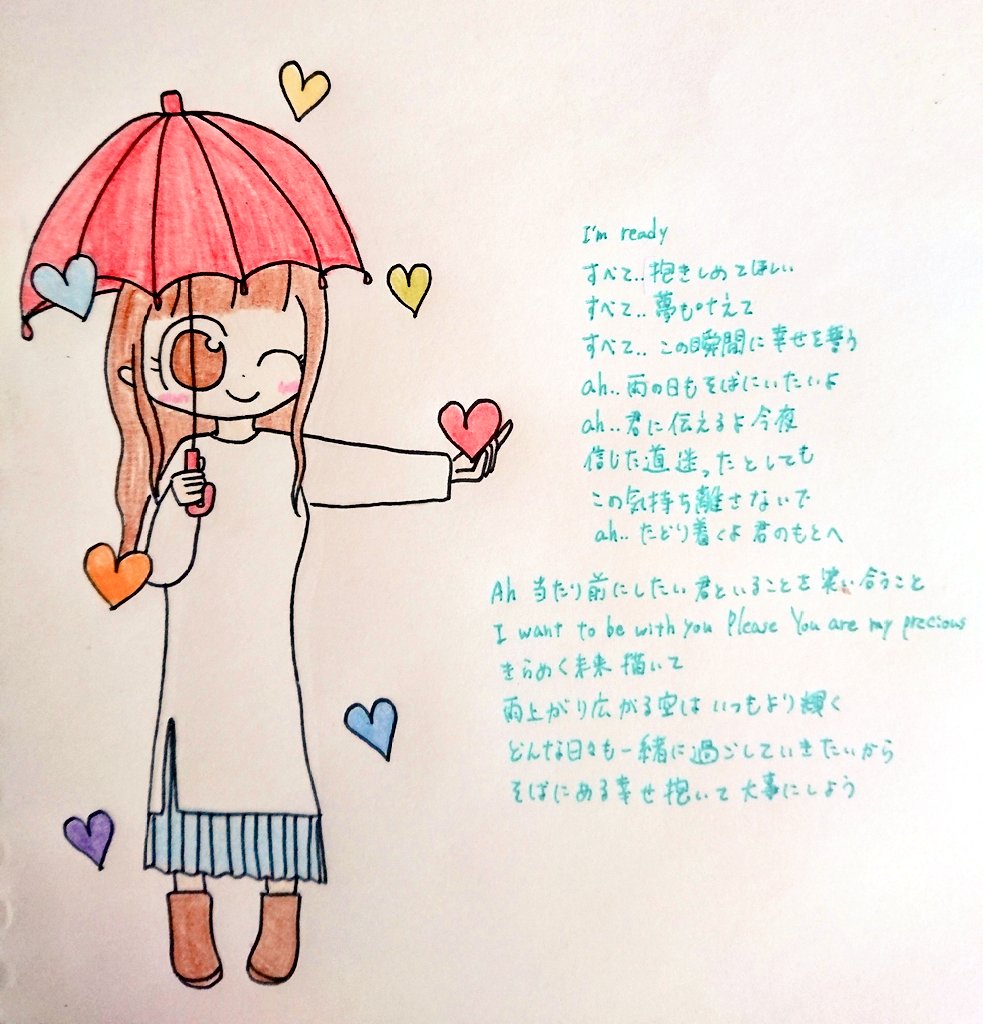 I'm ready
すべて‥抱きしめてほしい
すべて‥夢も叶えて
すべて‥この瞬間に幸せを誓う
ah‥雨の日もそばにいたいよ
ah‥君に伝えるよ今夜
信じた道迷ったとしても
この気持ち離さないで
ah‥たどり着くよ君のもとへ
Ah 当たり前にしたい君といることを笑い合うこと
I want to be with you Please You are my precious
きらめく未来描いて
雨上がり広がる空はいつもより輝く
どんな日々も一緒に過ごしていきたいから
そばにある幸せ抱いて大事にしよう